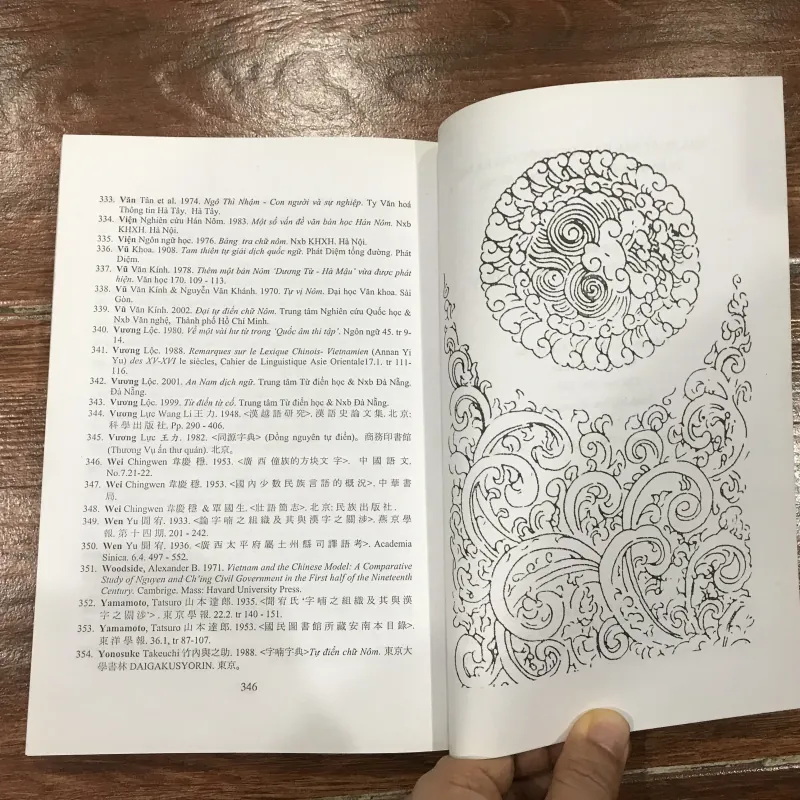 333. Văn Tân et al. 1974. Ngô Thì Nhậm - Con người và sự nghiệp. Ty Văn hoá
Thông tin Hà Tây, Hà Tây.
334. Viện Nghiên cứu Hán Nôm. 1983. Một số vấn đề văn bản học Hán Nôm. Nxb
KHXH. Hà Nội.
335. Viện Ngôn ngữ học. 1976. Bảng tra chữ nôm. Nxb KHXH. Hà Nội.
336. Vũ Khoa. 1908. Tam thiên tự giải dịch quốc ngữ. Phát Diệm tổng đường. Phát
Diệm.
337. Vũ Văn Kính. 1978. Thêm một bản Nôm ‘Dương Từ - Hà Mậu’ vừa được phát
hiện. Văn học 170. 109 - 113.
338. Vũ Văn Kính & Nguyễn Văn Khánh. 1970. Tự vị Nôm. Đại học Văn khoa. Sài
Gòn.
339. Vũ Văn Kính. 2002. Đại tự điển chữ Nôm. Trung tâm Nghiên cứu Quốc học &
Nxb Văn nghệ, Thành phố Hồ Chí Minh.
340. Vương Lộc. 1980. Về một vài hư từ trong ‘Quốc âm thi tập’. Ngôn ngữ 45. tr 9-
14.
341. Vương Lộc. 1988. Remarques sur le Lexique Chinois- Vietnamien (Annan Yi
Yu) des XV-XVI le siècles, Cahier de Linguistique Asie Orientale17.1. tr 111-
116.
342. Vương Lộc. 2001. An Nam dịch ngữ. Trung tâm Từ điển học & Nxb Đà Nẵng.
Đà Nẵng.
343. Vương Lộc. 1999. Từ điển từ cổ. Trung tâm Từ điển học & Nxb Đà Nẵng.
344. Vương Lực Wang Li 王力. 1948. <漢越語研究>. 漢語史論文集. 北京:
科學出版社. Pp. 290 - 406.
345. Vương Lực 王力. 1982. <同源字典> (Đồng nguyên tự điển)。商務印書館
(Thương Vụ ấn thư quán). 北京。
346. Wei Chingwen 韋慶穩. 1953. <廣西僮族的方块文字>. 中國語文.
No.7.21-22.
347. Wei Chingwen 韋慶穩. 1953. <國內少數民族言語的概況>. 中華書
局.
348. Wei Chingwen 韋慶穩 & 覃國生. <壯語簡志>. 北京: 民族出版社.
349. Wen Yu 聞宥. 1933. <論字喃之組織及其與漢字之關涉>. 燕京學
報. 第十四期. 201 - 242.
350. Wen Yu 聞宥. 1936. <廣西太平府屬土州縣司譯語考>. Academia
Sinica. 6.4. 497 - 552.
351. Woodside, Alexander B. 1971. Vietnam and the Chinese Model: A Comparative
Study of Nguyen and Ch’ing Civil Government in the First half of the Nineteenth
Century. Cambrige. Mass: Havard University Press.
352. Yamamoto, Tatsuro 山本達郎. 1935. <聞宥氏‘字喃之組織及其與漢
字之關涉’>. 東京學報. 22.2. tr 140 - 151.
353. Yamamoto, Tatsuro 山本達郎. 1953. <國民圖書館所藏安南本目錄>.
東洋學報. 36.1, tr 87-107.
354. Yonosuke Takeuchi 竹內與之助. 1988. <字喃字典>Tự điển chữ Nôm. 東京大
學書林 DAIGAKUSYORIN. 東京。
346